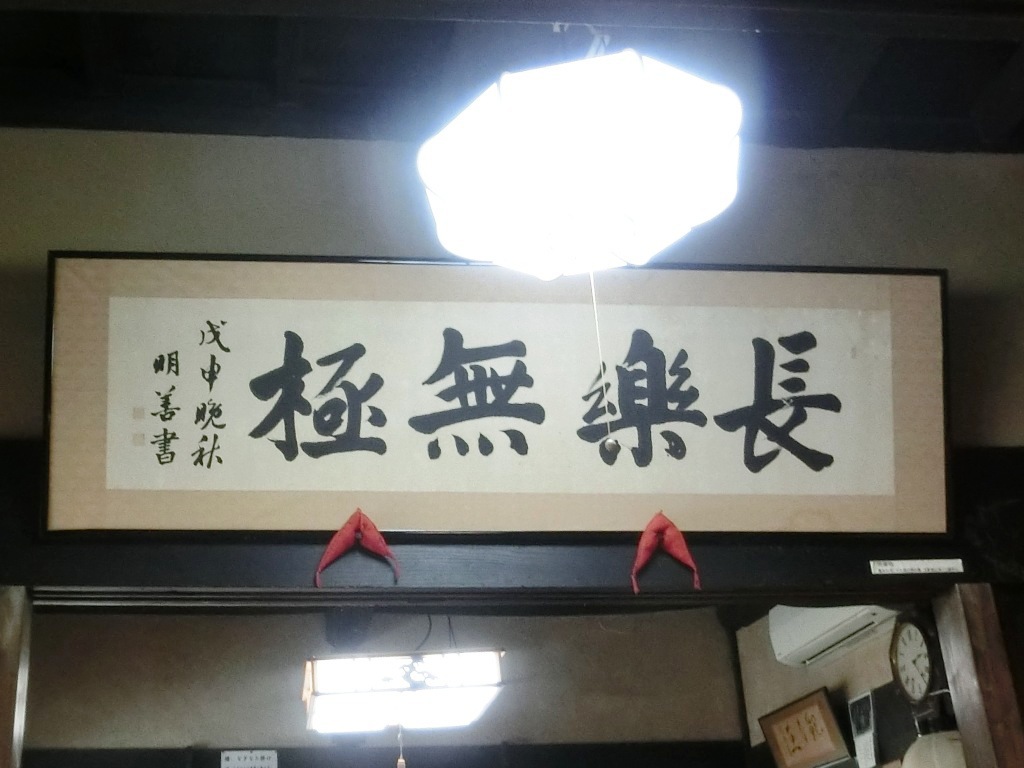 長樂無極
戊申晩秋
明善書